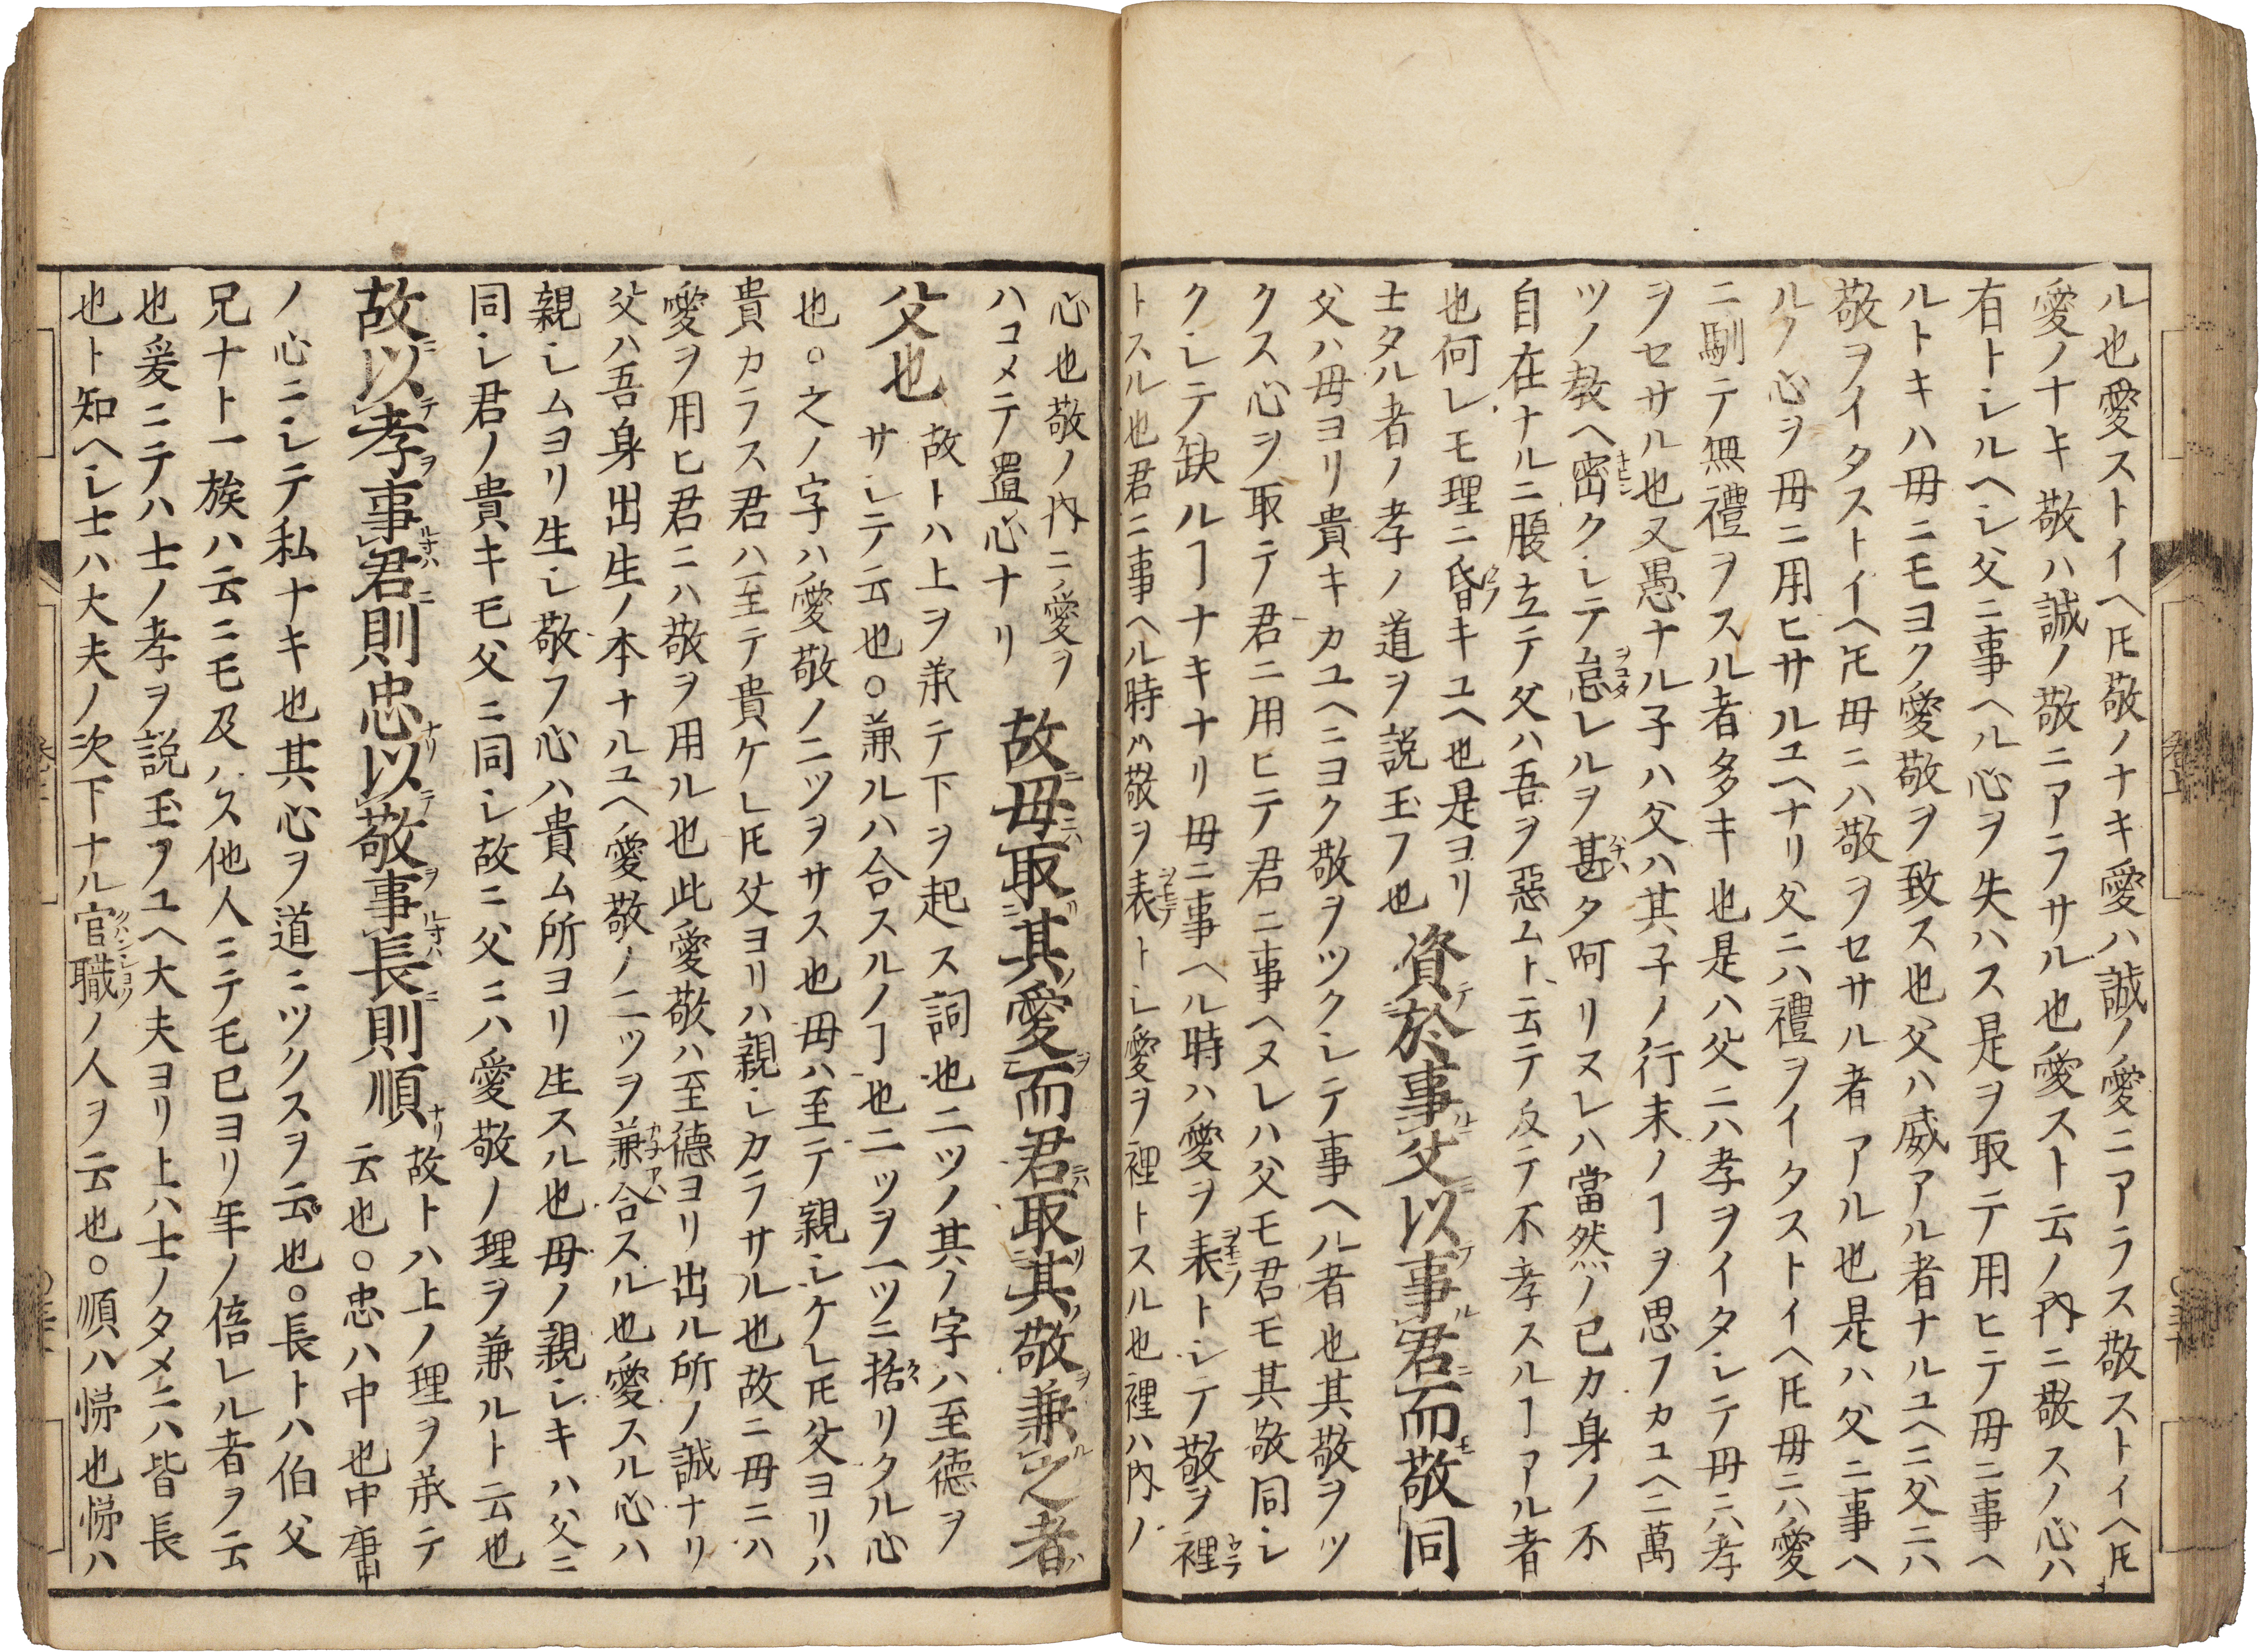 ル也愛ストイヘ𪜈敬ノナキ愛ハ誠ノ愛ニアラス敬ストイヘ𪜈
愛ノナキ敬ハ誠ノ敬ニアラサル也愛スト云ノ内ニ敬スノ心ハ
有トシルヘシ父ニ事ヘル心ヲ失ハス是ヲ取テ用ヒテ毋ニ事ヘ
ルトキハ毋ニモヨク愛敬ヲ致ス也父ハ威アル者ナルユヘニ父ニハ
敬ヲイタストイヘ𪜈毋ニハ敬ヲセサル者アル也是ハ父ニ事ヘ
ルノ心ヲ毋ニ用ヒサルユヘナリ父ニハ禮ヲイタストイヘ𪜈毋ニハ愛
ニ馴テ無禮ヲスル者多キ也是ハ父ニハ孝ヲイタシテ毋ニハ孝
ヲセサル也又愚ナル子ハ父ハ其子ノ行末ノヿヲ思フカユヘニ萬
ツノ教ヘ密クシテ怠レルヲ甚タ呵リヌレハ當然ノ已カ身ノ不
自在ナルニ腹立テ父ハ吾ヲ惡ムト云テ反テ不孝スルヿアル者
也何レモ理ニ昏キユヘ也是ヨリ
士タル者ノ孝ノ道ヲ説玉フ也
資テ於事ルニ父ニ以テ事ル君ニ而敬モ同
父ハ毋ヨリ貴キカユヘニヨク敬ヲツクシテ事ヘル者也其敬ヲツ
クス心ヲ取テ君ニ用ヒテ君ニ事ヘヌレハ父モ君モ其敬同シ
クシテ缺ルヿナキナリ毋ニ事ヘル時ハ愛ヲ表トシテ敬ヲ裡
トスル也君ニ事ヘル時ハ敬ヲ表トシ愛ヲ裡トスル也裡ハ内ノ
心也敬ノ内ニ愛ヲ
ハコメテ置心ナリ
故ニ毋ニハ取リ其ノ愛ヲ而君ニハ取リ其ノ敬ヲ兼ル之者ハ
父也
故トハ上ヲ承テ下ヲ起ス詞也二ツノ其ノ字ハ至德ヲ
サシテ云也○兼ルハ合スルノヿ也二ツヲ一ツニ括リタル心
也○之ノ字ハ愛敬ノ二ツヲサス也毋ハ至テ親シケレ𪜈父ヨリハ
貴カラス君ハ至テ貴ケレ𪜈父ヨリハ親シカラサル也故ニ毋ニハ
愛ヲ用ヒ君ニハ敬ヲ用ル也此愛敬ハ至德ヨリ出ル所ノ誠ナリ
父ハ吾身出生ノ本ナルユヘ愛敬ノ二ツヲ兼合スル也愛スル心ハ
親シムヨリ生シ敬フ心ハ貴ム所ヨリ生スル也毋ノ親シキハ父ニ
同シ君ノ貴キモ父ニ同シ故ニ父ニハ愛敬ノ理ヲ兼ルト云也
故ニ以テ孝ヲ事ル寸ハ君ニ則忠ナリ以テ敬ヲ事ル寸ハ長ニ則順ナリ
故トハ上ノ理ヲ承テ
云也○忠ハ中也中庸中
ノ心ニシテ私ナキ也其心ヲ道ニツクスヲ云也○長トハ伯父
兄ナト一族ハ云ニモ及ハス他人ニテモ已ヨリ年ノ倍レル者ヲ云
也爰ニテハ士ノ孝ヲ説玉フユヘ大夫ヨリ上ハ士ノタメニハ皆長
也ト知ヘシ士ハ大夫ノ次下ナル官職ノ人ヲ云也○順ハ悌也悌ハ